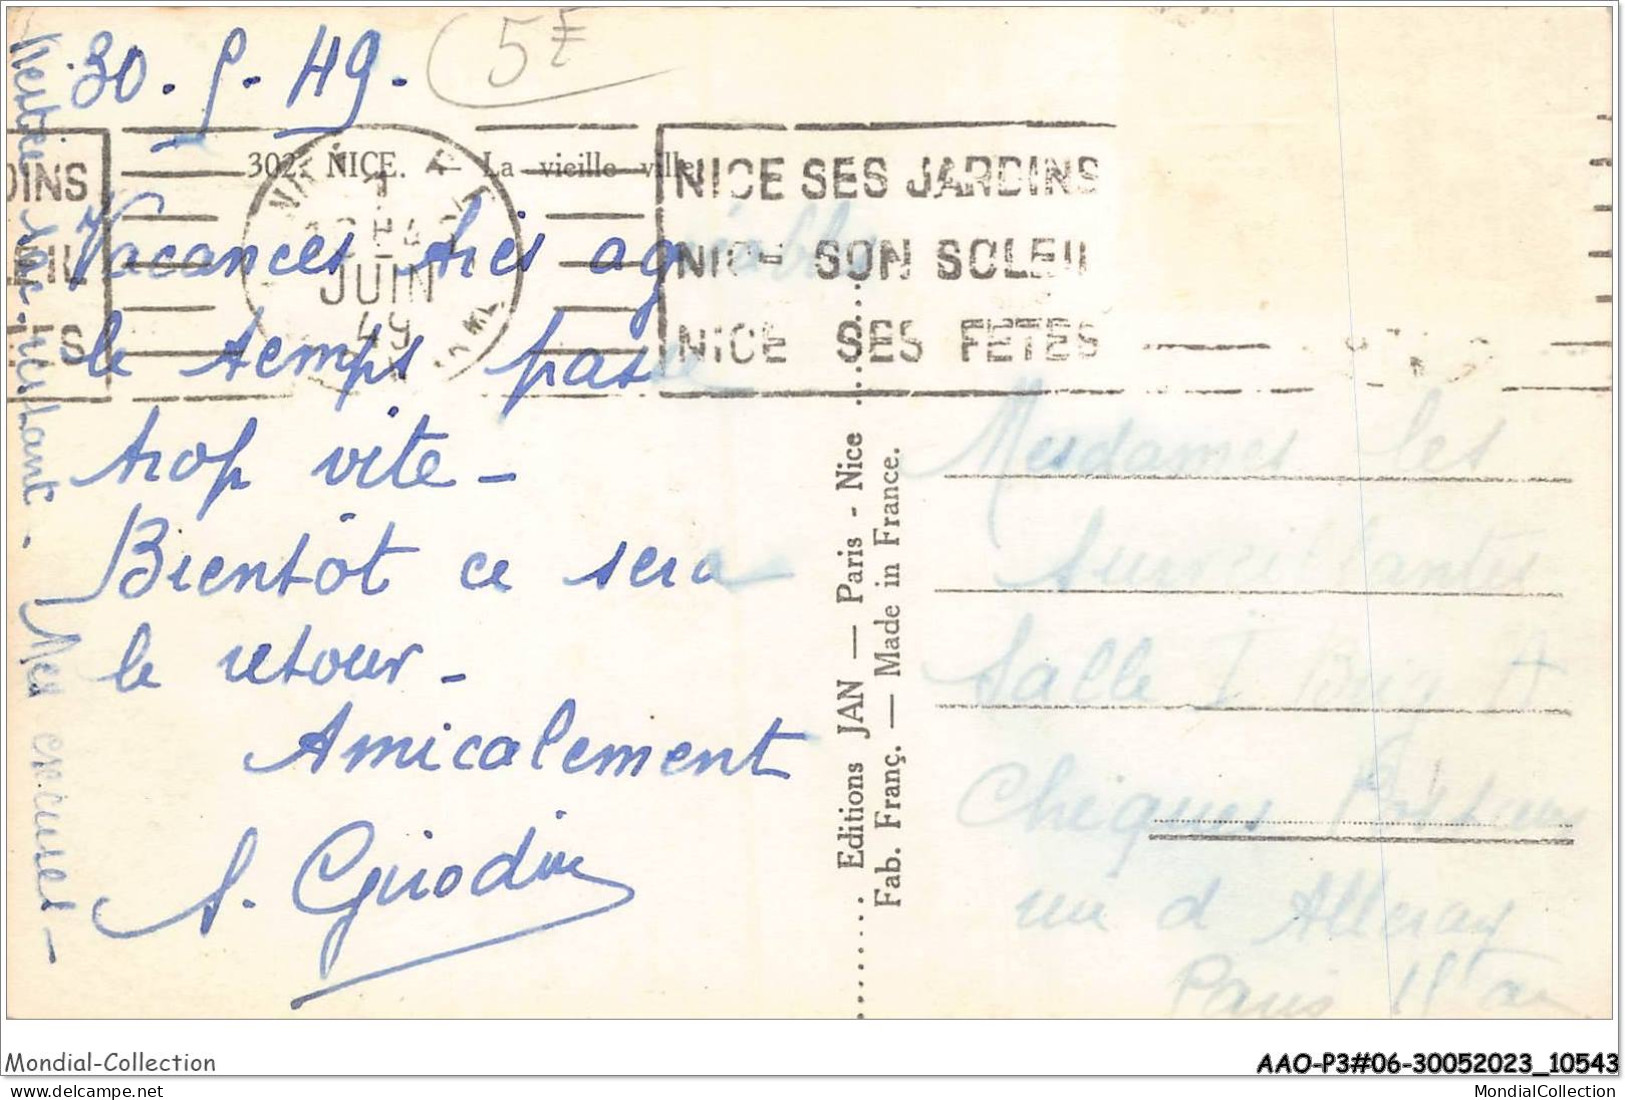 30. 5. 49.
5F
302. NICE. — La vieille ville
JUIN
49
DINS
NICE SES JARDINS
NICE SON SOLEIL
NICE SES FETES
Vacances très agréables
le temps passe
trop vite -
Bientôt ce sera
le retour -
Amicalement
S. Girodin
sur - Mes excuses -
Editions JAN — Paris - Nice
Fab. Franç. — Made in France.
Mesdames les
Surveillantes
Salle I Brig A
Chèques Postaux
rue d Alleray
Paris 15e ar
Mondial-Collection
AAO-P3#06-30052023_10543
delcampe.net
MondialCollection